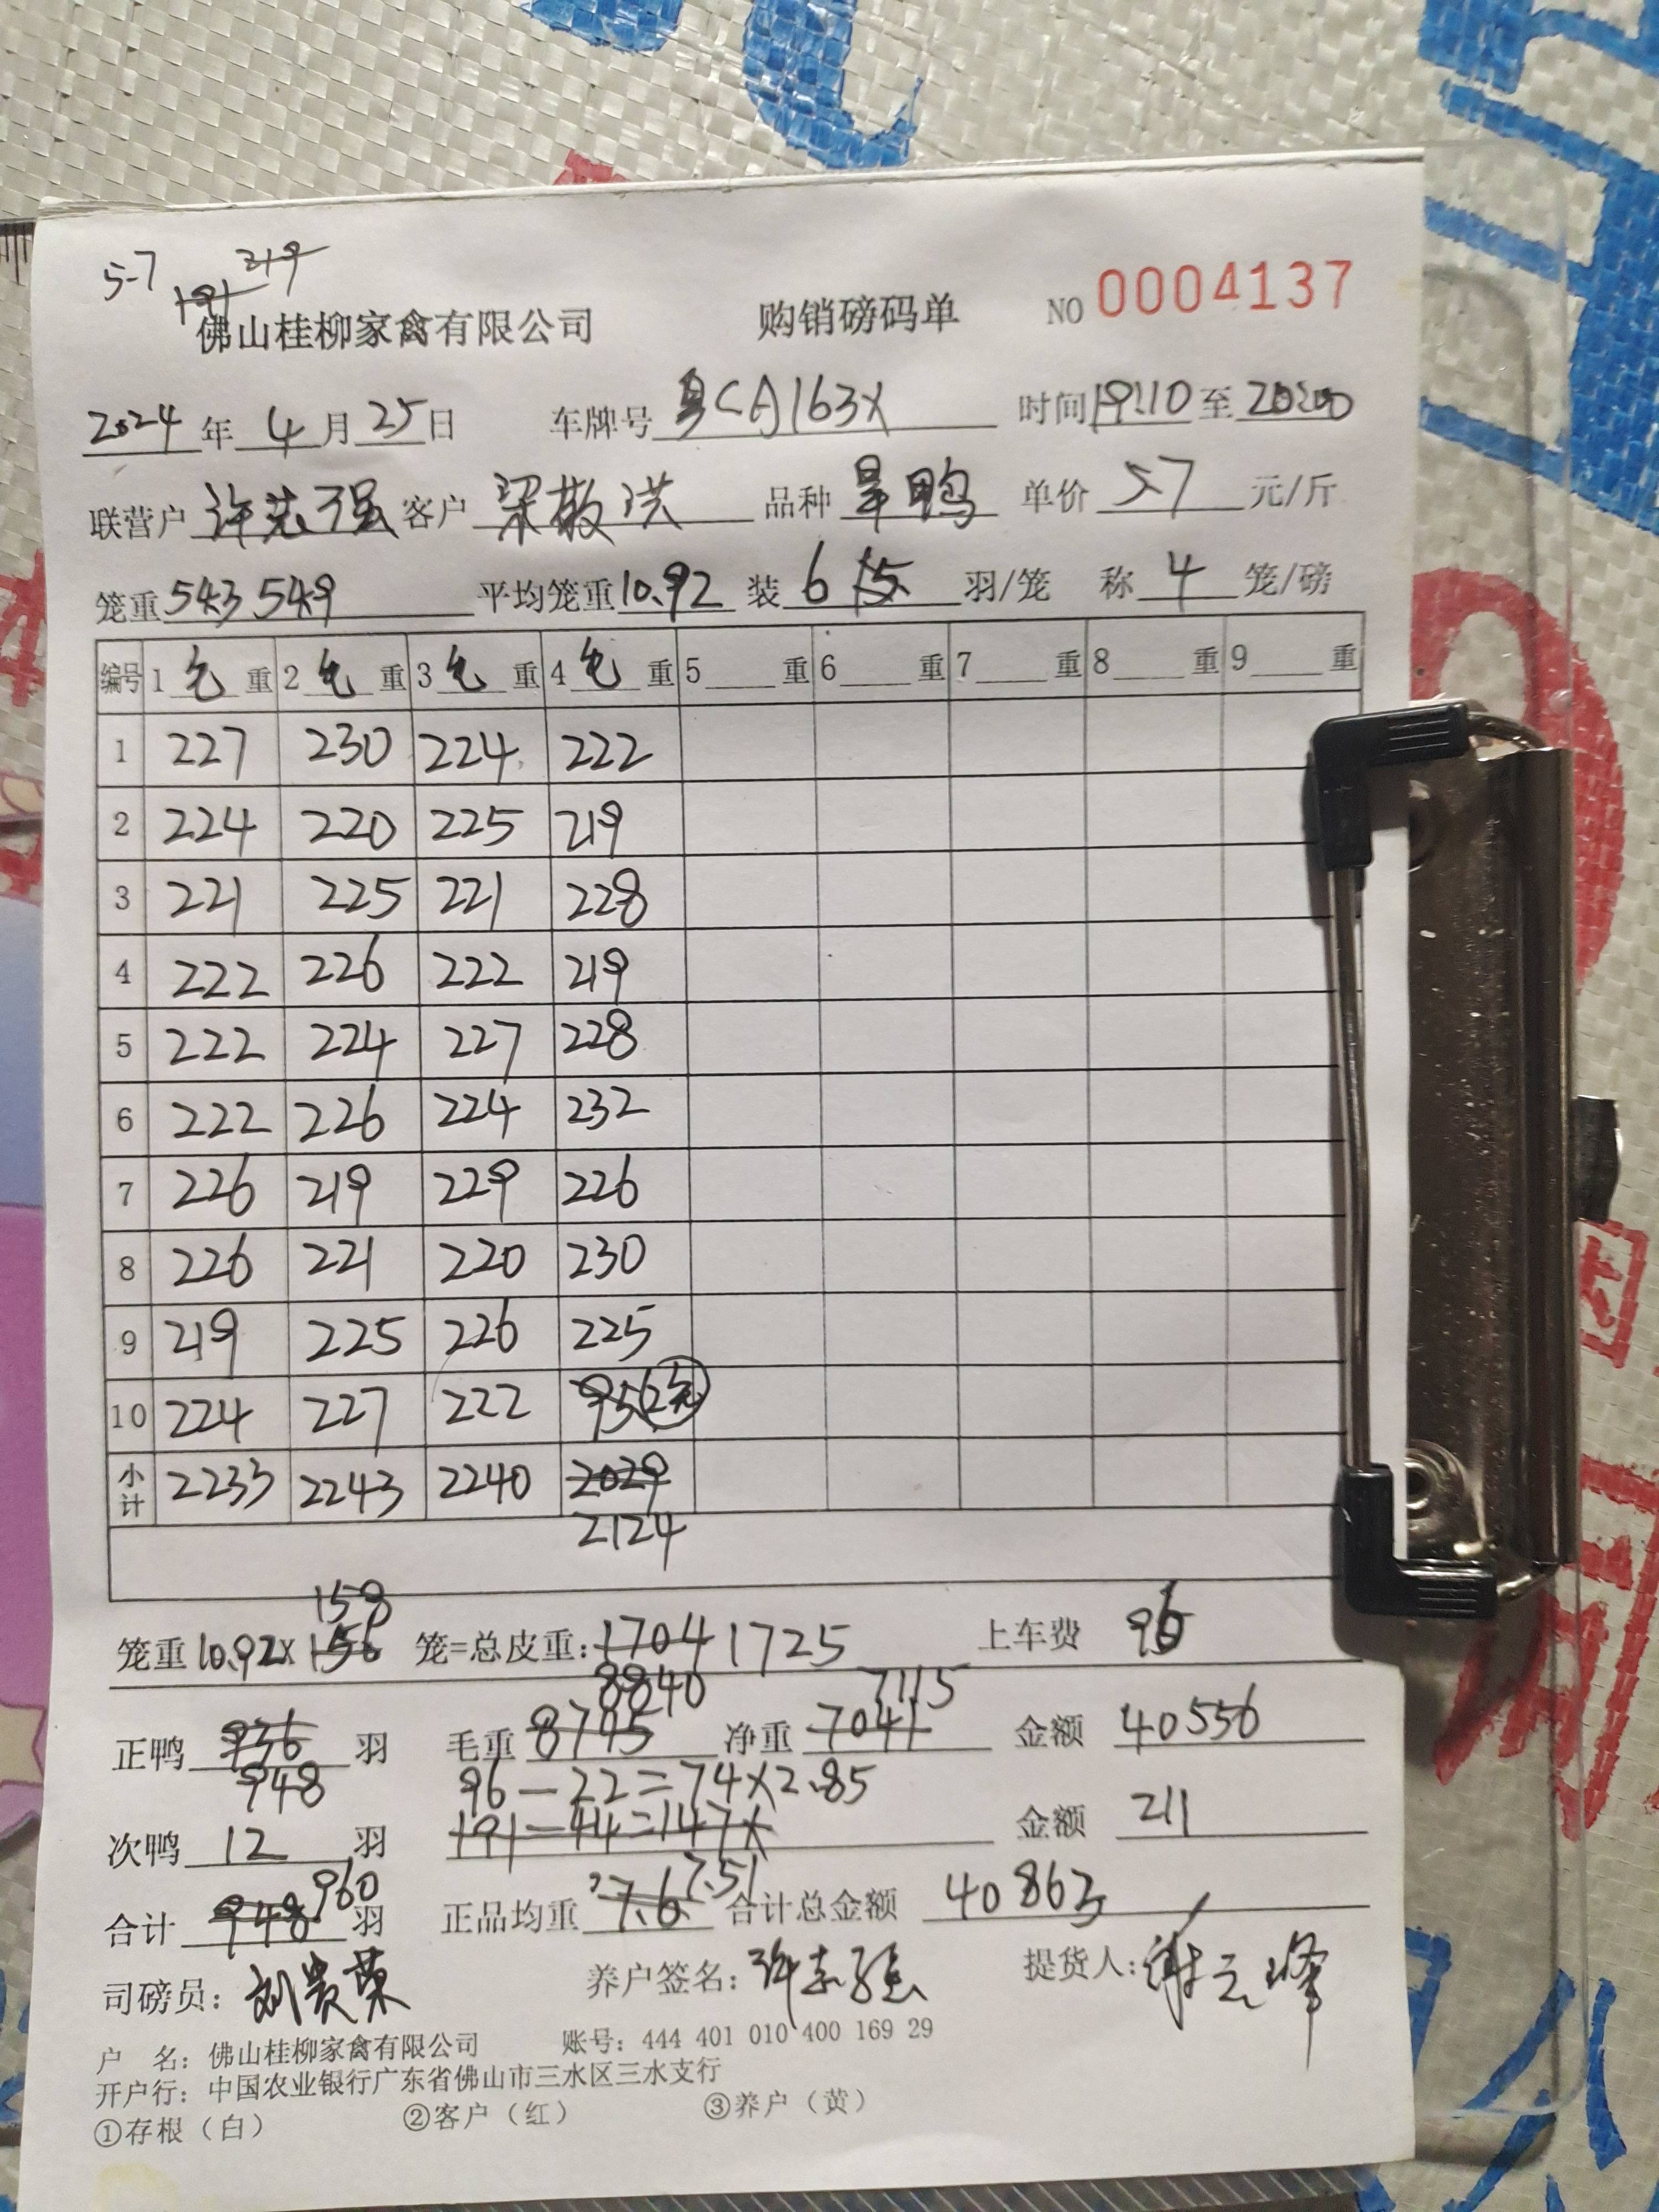 5-7 191 219
佛山桂柳家禽有限公司 购销磅码单 NO 0004137
2024年4月25日 车牌号粤CA163X 时间19:10至20:00
联营户许志强 客户梁敬洪 品种旱鸭 单价5.7元/斤
笼重543 549 平均笼重10.92 装6 羽/笼 称4笼/磅
编号 1毛重 2毛重 3毛重 4毛重 5重 6重 7重 8重 9重
1 227 230 224 222
2 224 220 225 219
3 221 225 221 228
4 222 226 222 219
5 222 224 227 228
6 222 226 224 232
7 226 219 229 226
8 226 221 220 230
9 219 225 226 225
10 224 227 222 95 2
小计 2233 2243 2240 2029
2124
158
笼重10.92×156 笼=总皮重:1704 1725 上车费 96
8840 7115
正鸭936羽 毛重8745 净重7041 金额40556
948 96-22=74×2.85
次鸭12羽 191-44=147× 金额211
960 7.51
合计948羽 正品均重7.6 合计总金额40863
司磅员:刘贵荣 养户签名:许志强 提货人:谢云峰
户 名:佛山桂柳家禽有限公司 账号:444 401 010 400 169 29
开户行:中国农业银行广东省佛山市三水区三水支行
①存根(白) ②客户(红) ③养户(黄)